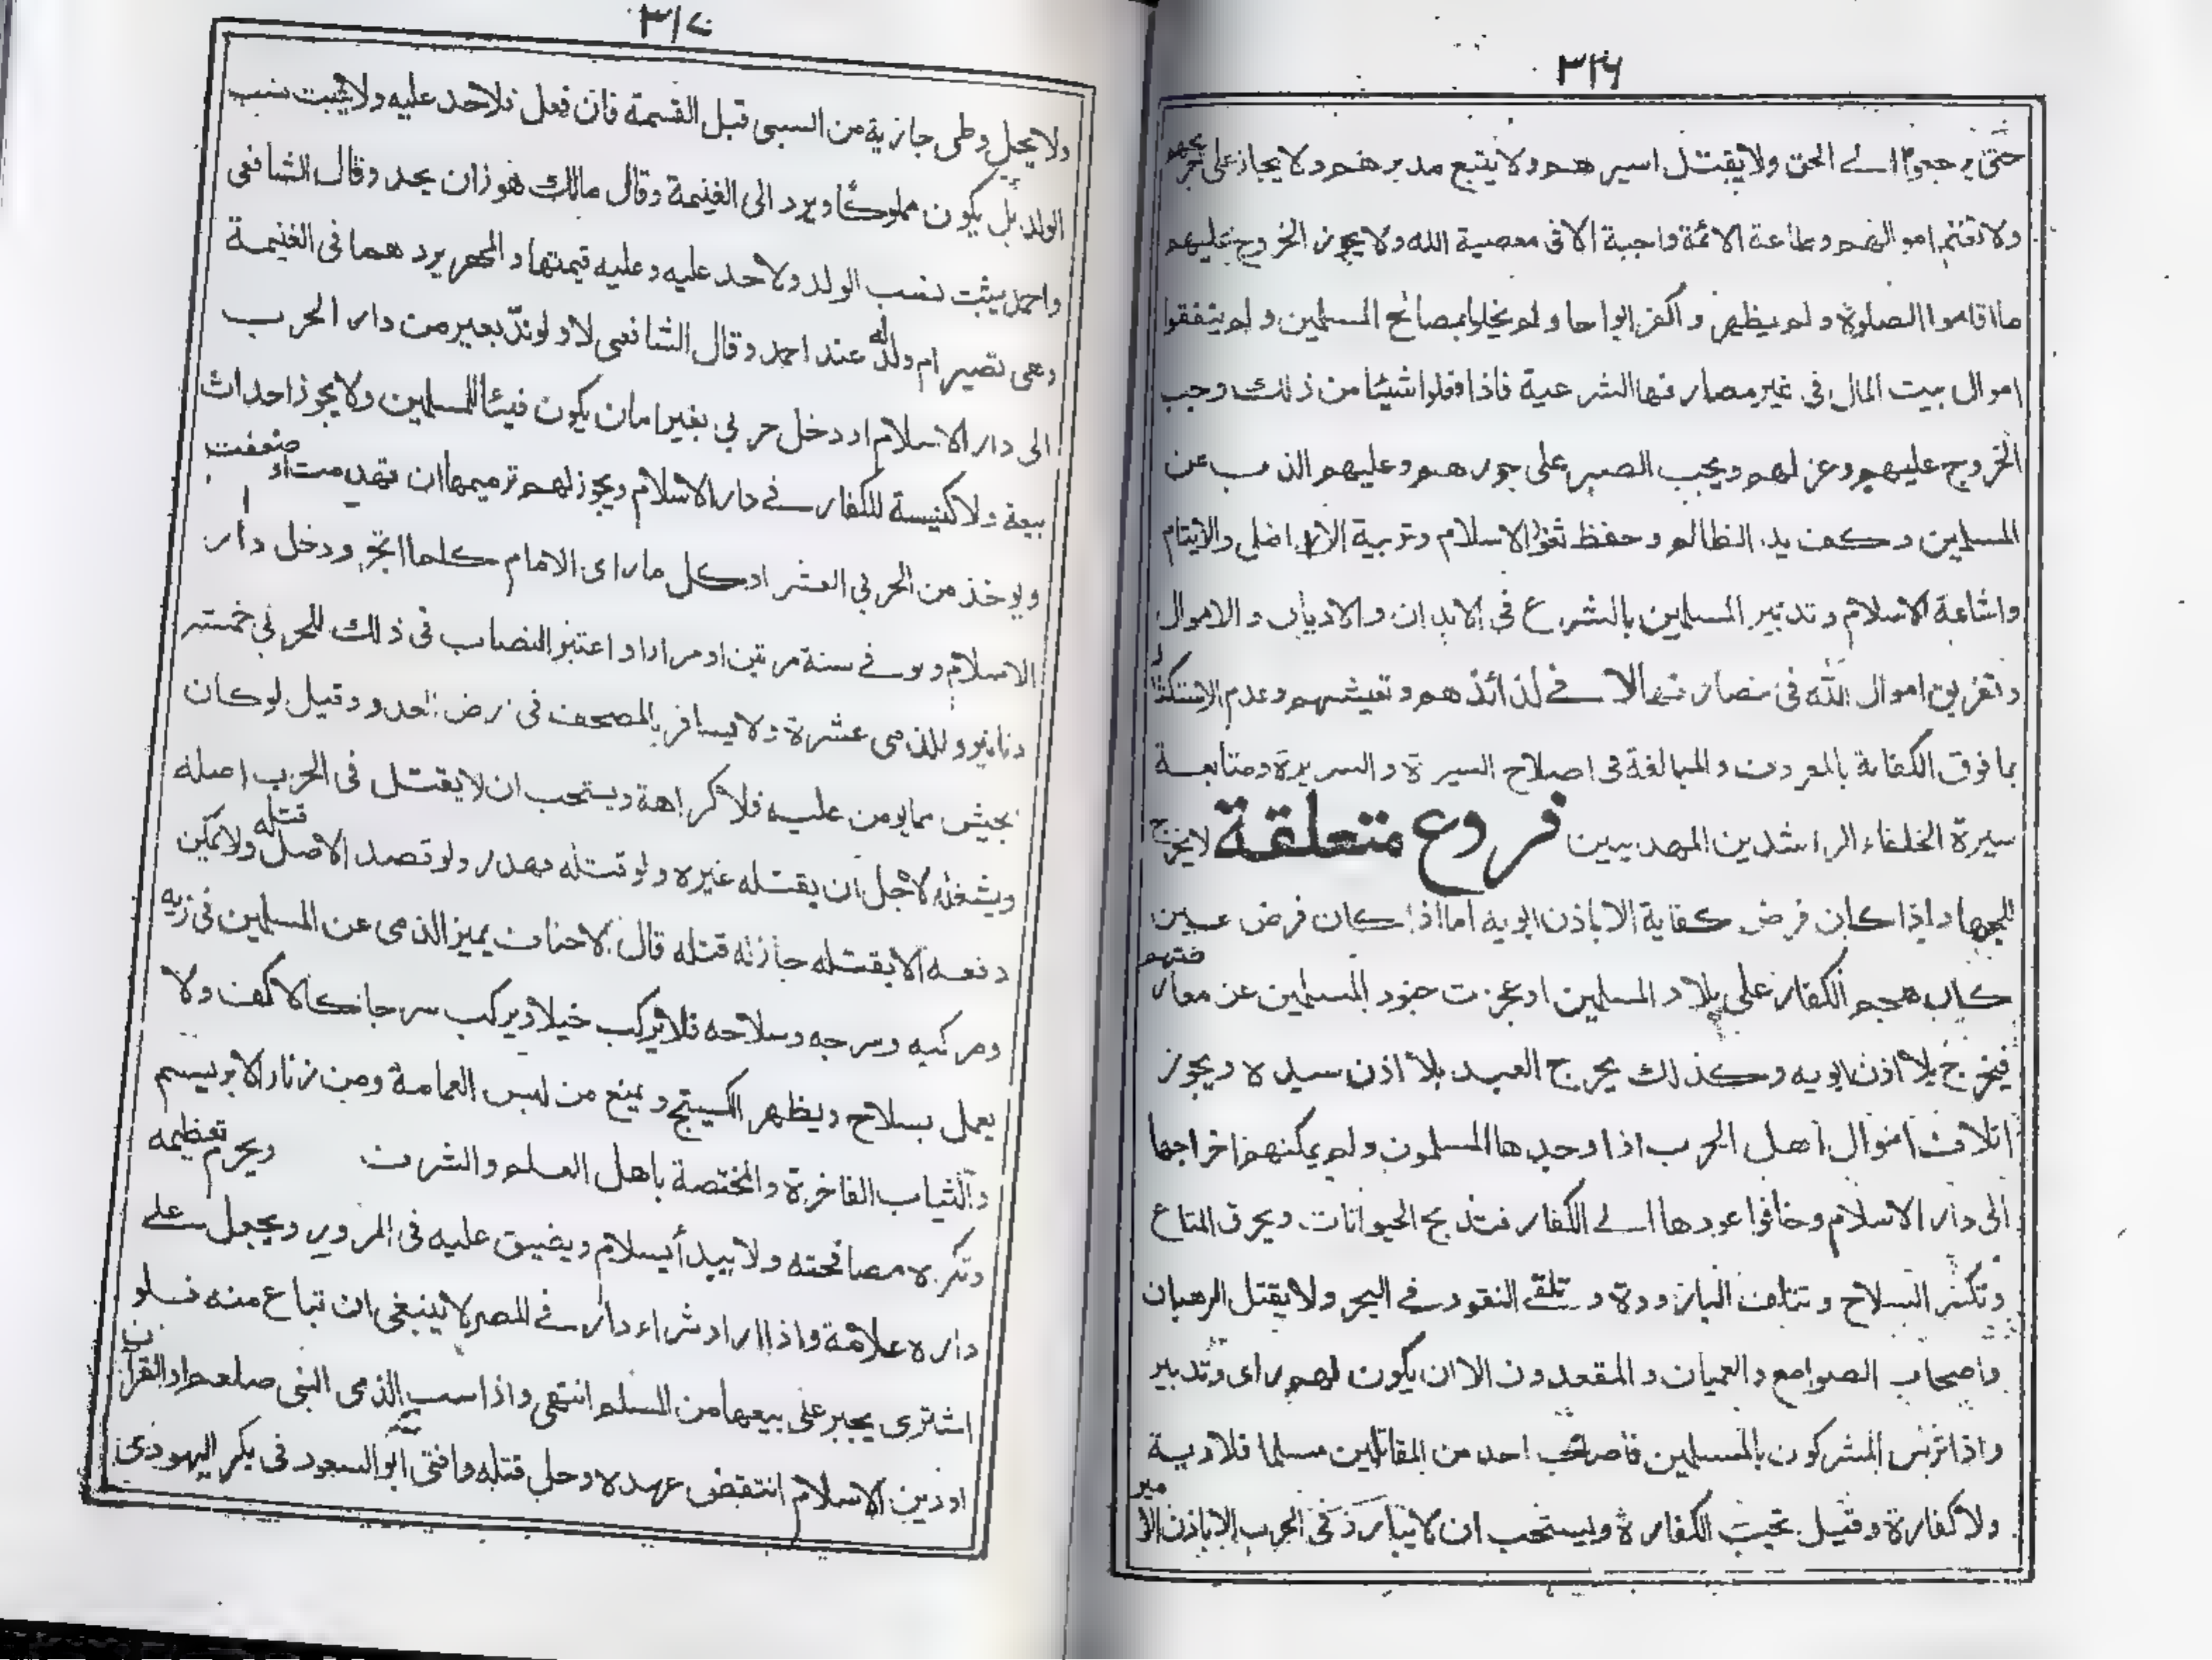 ٣١٦
حتى يرجعوا الى الحق ولا يقتل اسيرهم ولا يتبع مدبرهم ولا يجاز على جريحهم
ولا تغتنم اموالهم وطاعة الائمة واجبة الا فى معصية الله ولا يجوز الخروج عليهم
ما اقاموا الصلوة ولم يظهروا كفرا بواحا ولم يخلوا بمصالح المسلمين ولم ينفقوا
اموال بيت المال فى غير مصارفها الشرعية فاذا فعلوا شيئا من ذلك وجب
الخروج عليهم وعزلهم ويجب الصبر على جورهم وعليهم الذب عن
المسلمين وكف يد الظالم وحفظ ثغور الاسلام وتربية الارامل والايتام
واشاعة الاسلام وتدبير المسلمين بالشرع فى الابدان والاديان والاموال
وتفريق اموال الله فى مصارفها لا فى لذائذهم وتعيشهم وعدم الاستكثار
بما فوق الكفاية بالمعروف والمبالغة فى اصلاح السيرة والسريرة ومتابعة
سيرة الخلفاء الراشدين المهديين فروع متعلقة لا يخرج
للجهاد اذا كان فرض كفاية الا باذن ابويه اما اذا كان فرض عين
كان هجم الكفار على بلاد المسلمين او عجزت جنود المسلمين عن معارضتهم
فيخرج بلا اذن ابويه وكذلك يخرج العبد بلا اذن سيده ويجوز
اتلاف اموال اهل الحرب اذا وجدها المسلمون ولم يمكنهم اخراجها
الى دار الاسلام وخافوا عودها الى الكفار فتذبح الحيوانات ويحرق المتاع
وتكسر السلاح وتتلف البارودة وتلقى النقود فى البحر ولا يقتل الرهبان
واصحاب الصوامع والعميان والمقعدون الا ان يكون لهم راى وتدبير
واذا تترس المشركون بالمسلمين فاصاب احد من المقاتلين مسلما فلا دية
ولا كفارة وقيل تجب الكفارة ويستحب ان لا يبارز فى الحرب الا باذن الامير
٣١٧
ولا يحل وطى جارية من السبى قبل القسمة فان فعل فلا حد عليه ولا يثبت نسب
الولد بل يكون مملوكا ويرد الى الغنيمة وقال مالك هو زان يحد وقال الشافعى
واحمد يثبت نسب الولد ولا حد عليه وعليه قيمتها والمهر يردهما فى الغنيمة
وهى تصير ام ولد له عند احمد وقال الشافعى لا ولو ند بعير من دار الحرب
الى دار الاسلام او دخل حربى بغير امان يكون فيئا للمسلمين ولا يجوز احداث
بيعة ولا كنيسة للكفار فى دار الاسلام ويجوز لهم ترميمها ان تهدمت او ضعفت
ويوخذ من الحربى العشر او كل ما راى الامام كلما اتجر ودخل دار
الاسلام ولو فى سنة مرتين او مرارا واعتبر النصاب فى ذلك للحربى خمسة
دنانير وللذمى عشرة ولا يسافر بالمصحف فى ارض العدو وقيل لو كان
بجيش مما يومن عليه فلا كراهة ويستحب ان لا يقتل فى الحرب اصله
ويشغله لاجل ان يقتله غيره ولو قتله فهدر ولو قصد الاصل قتله ولا يمكن
دفعه الا بقتله جاز له قتله قال الاحناف يميز الذمى عن المسلمين فى زيه
ومركبه وسرجه وسلاحه فلا يركب خيلا ويركب سرجا كالاكف ولا
يعمل بسلاح ويظهر الكستيج ويمنع من لبس العمامة ومن زنار الابريسم
والثياب الفاخرة والمختصة باهل العلم والشرف ويحرم تعظيمه
وتكره مصافحته ولا يبدأ بسلام ويضيق عليه فى المرور ويجعل على
داره علامة واذا اراد شراء دار فى المصر لا ينبغى ان تباع منه فلو
اشترى يجبر على بيعها من المسلم انتهى واذا سب الذمى النبى صلعم او القرآن
او دين الاسلام انتقض عهده وحل قتله وافتى ابو السعود فى بكر اليهودى